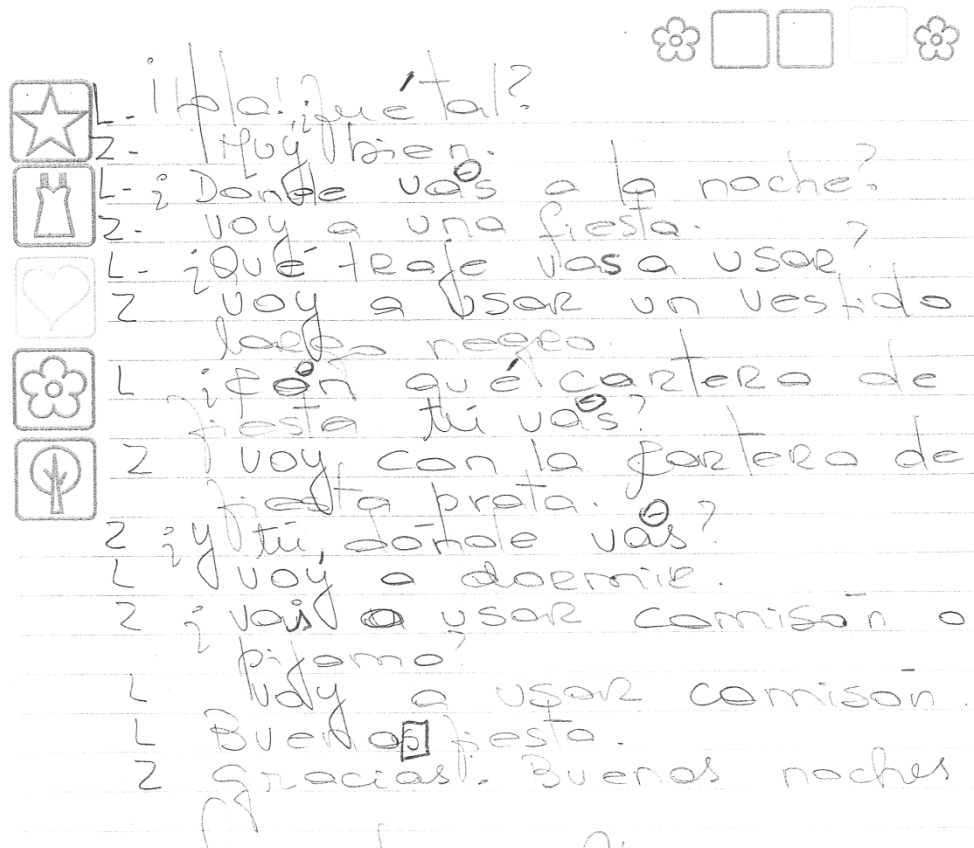 L- ¡Hola! ¿Qué tal?
Z- Muy bien.
L- ¿Donde vas a la noche?
Z- Voy a una fiesta.
L- ¿Qué traje vas a usar?
Z Voy a usar un vestido
largo negro.
L ¿Con qué cartera de
fiesta tú vas?
Z Voy con la cartera de
fiesta prata.
Z ¿Y tú, dónde vas?
L Voy a dormir.
Z ¿Vais a usar camisón o
pijama?
L Voy a usar camisón.
L Buenas fiesta.
Z Gracias. Buenas noches